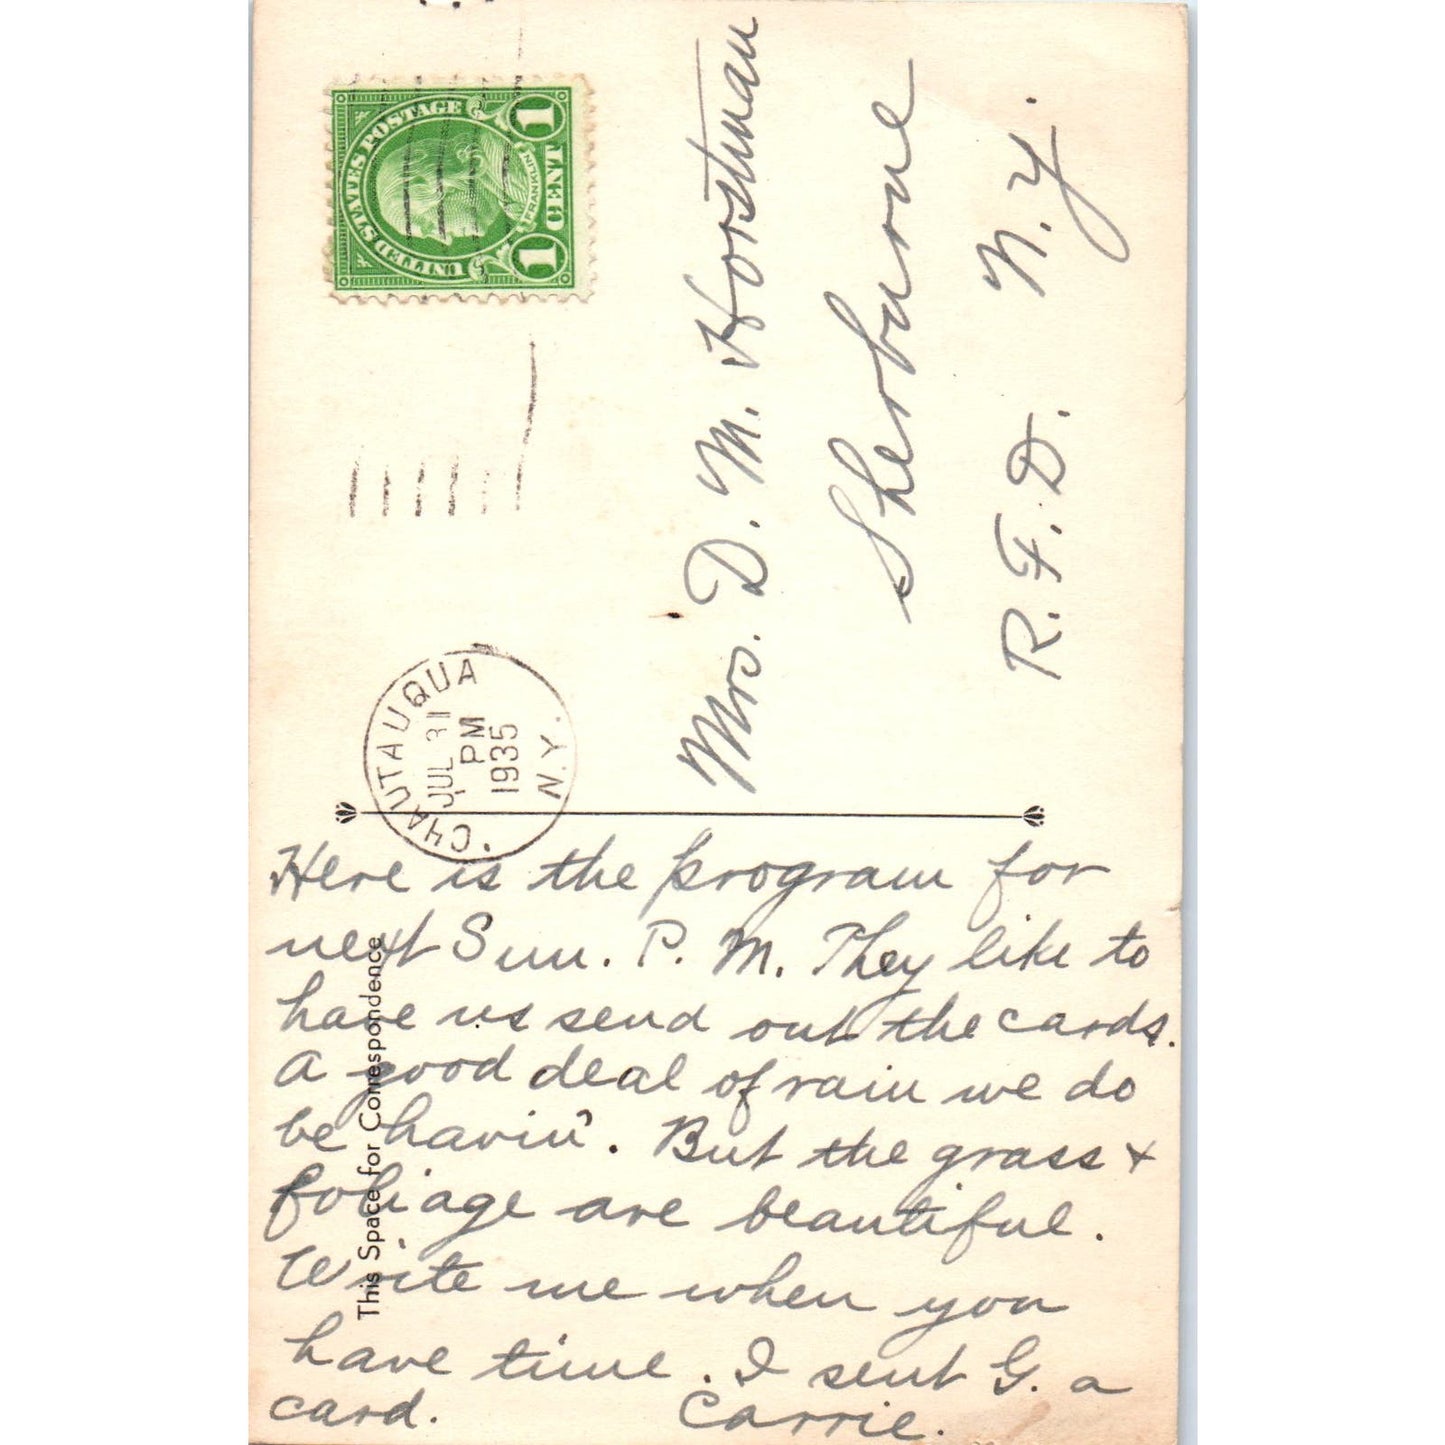 Here is the program for
next Sun. P. M. They like to
have us send out the cards.
A good deal of rain we do
be havin'. But the grass +
foliage are beautiful.
Write me when you
have time. I sent G. a
card. Carrie.
This Space for Correspondence
CHAUTAUQUA
JUL 31
PM
1935
N.Y.
UNITED STATES POSTAGE
FRANKLIN
1 CENT 1
Mrs. D. M. Horstman
Sherburne
R. F. D. N. Y.